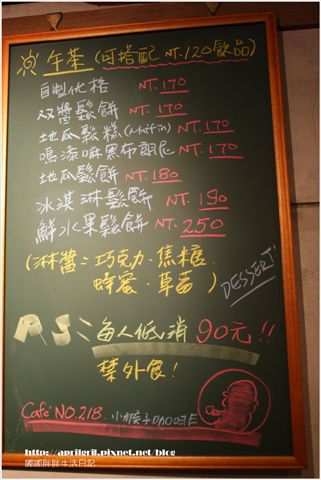 午茶 (可搭配 NT.120飲品)
自製优格 NT.170
双醬鬆餅 NT.170
地瓜鬆糕(Muffin) NT.170
嗚漆嘛黑布朗尼 NT.170
地瓜鬆餅 NT.180
冰淇淋鬆餅 NT.190
鮮水果鬆餅 NT.250
(淋醬:巧克力.焦糖.
蜂蜜.草莓)
DESSERT!
P.S: 每人低消90元!!
禁外食!
Café NO.218. 小房子咖啡
http://aprilgril.pixnet.net/blog
嘓嘓胖胖生活日記